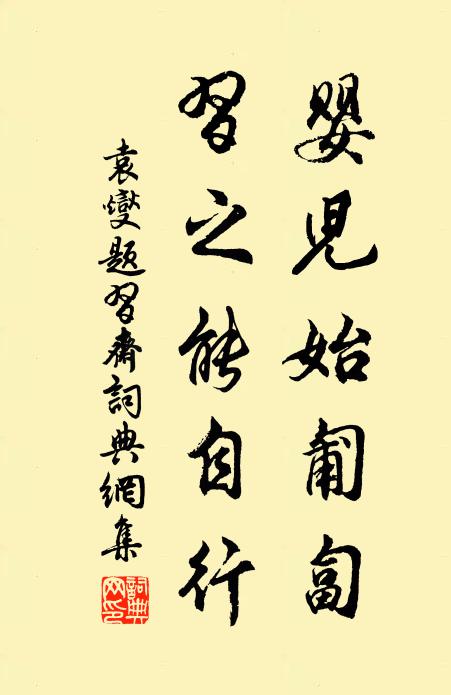 嬰児始匍匐
習之能自行
袁燮題習齋詞典網集
詞典網印